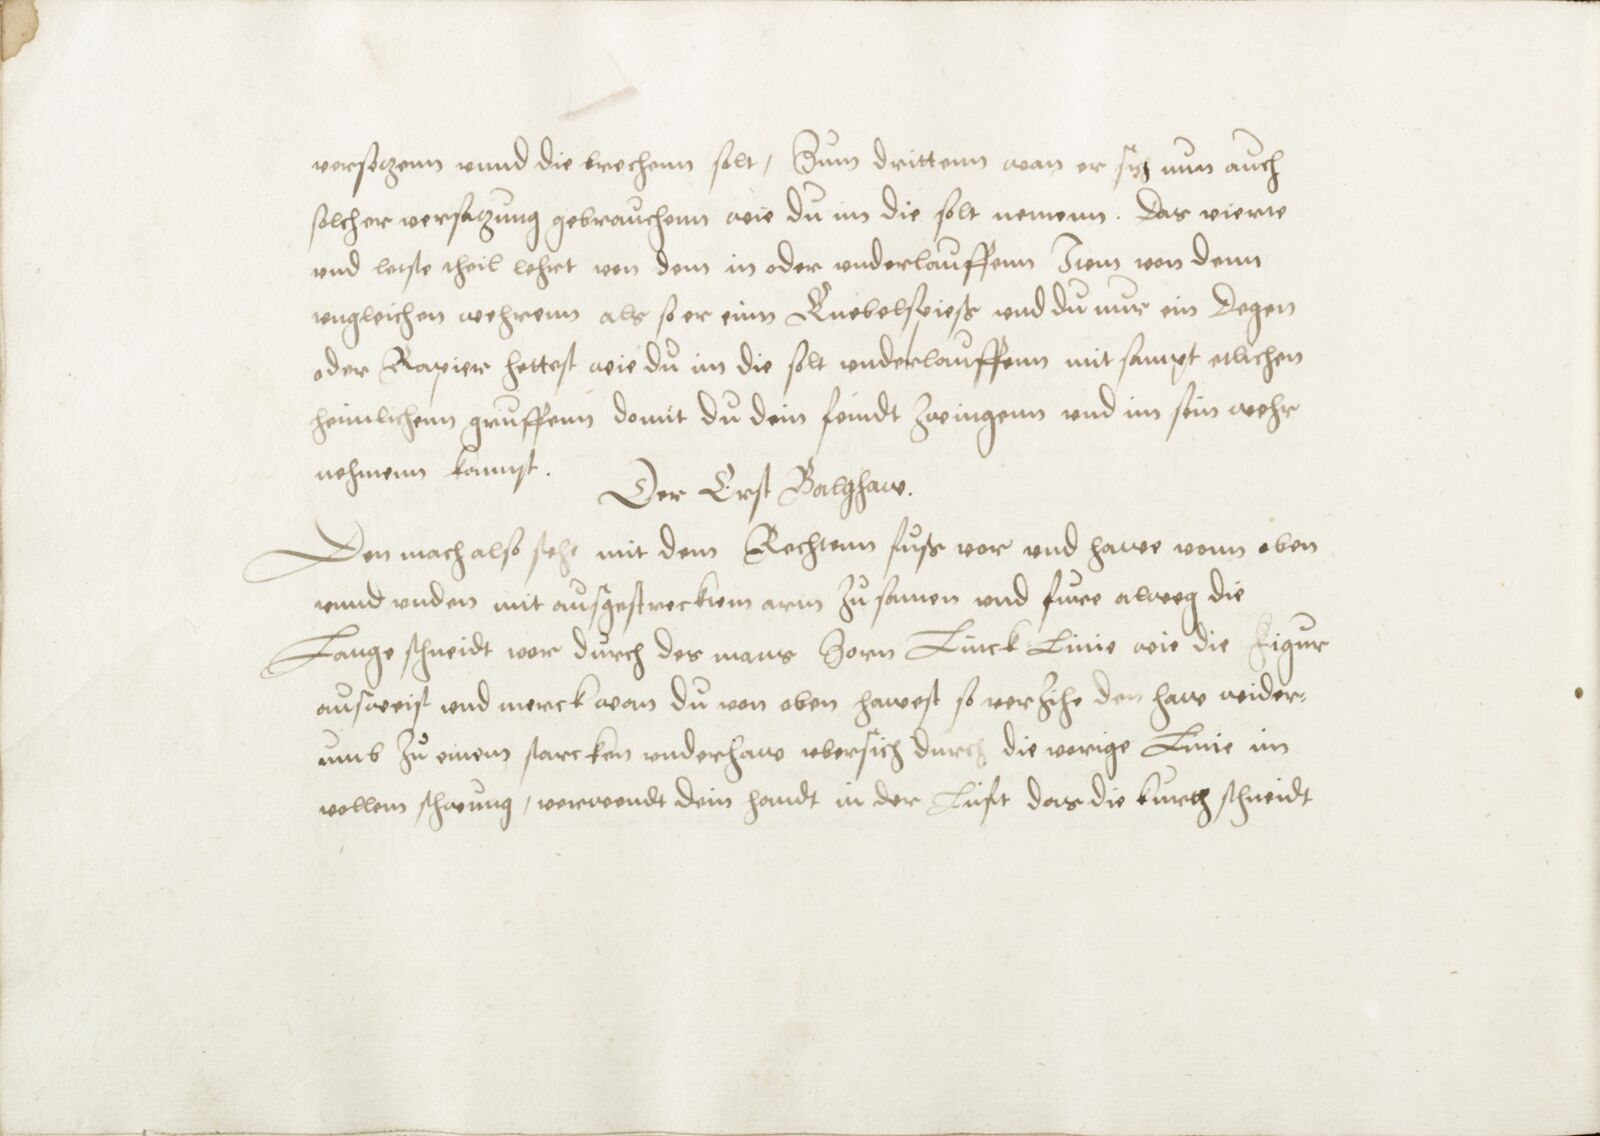 versetzenn vnnd die brechenn solt, Zum drittenn wan er sich nun auch
solcher versatzung gebrauchenn wie du im die solt nemenn. Das vierte
vnd letste theil lehrt von dem in oder vnderlauffenn Item von denn
vngleichen wehrenn als so er einn Knebelspiess vnd du nur ein Degen
oder Rapier hettest wie du im die solt vnderlauffenn mit sampt etlichen
heimlichenn gruffenn domit du dein feindt zwingenn vnd im sein wehr
nehmenn kannst.
Der Erst Balghaw.
Den mach also stehe mit dem Rechtenn fuss vor vnd hawe vonn oben
vnnd vnden mit aussgestrecktem arm zu samen vnd fure alweg die
Lange schneidt vor durch des mans Zorn Linck Linie wie die Figur
aussweist vnd merck wan du von oben hawest so verzihe den haw wider-
umb zu einem starcken vnderhaw vbersich durch die vorige Linie im
vollem schwung, verwendt dein handt in der Lufft das die kurtz schneidt